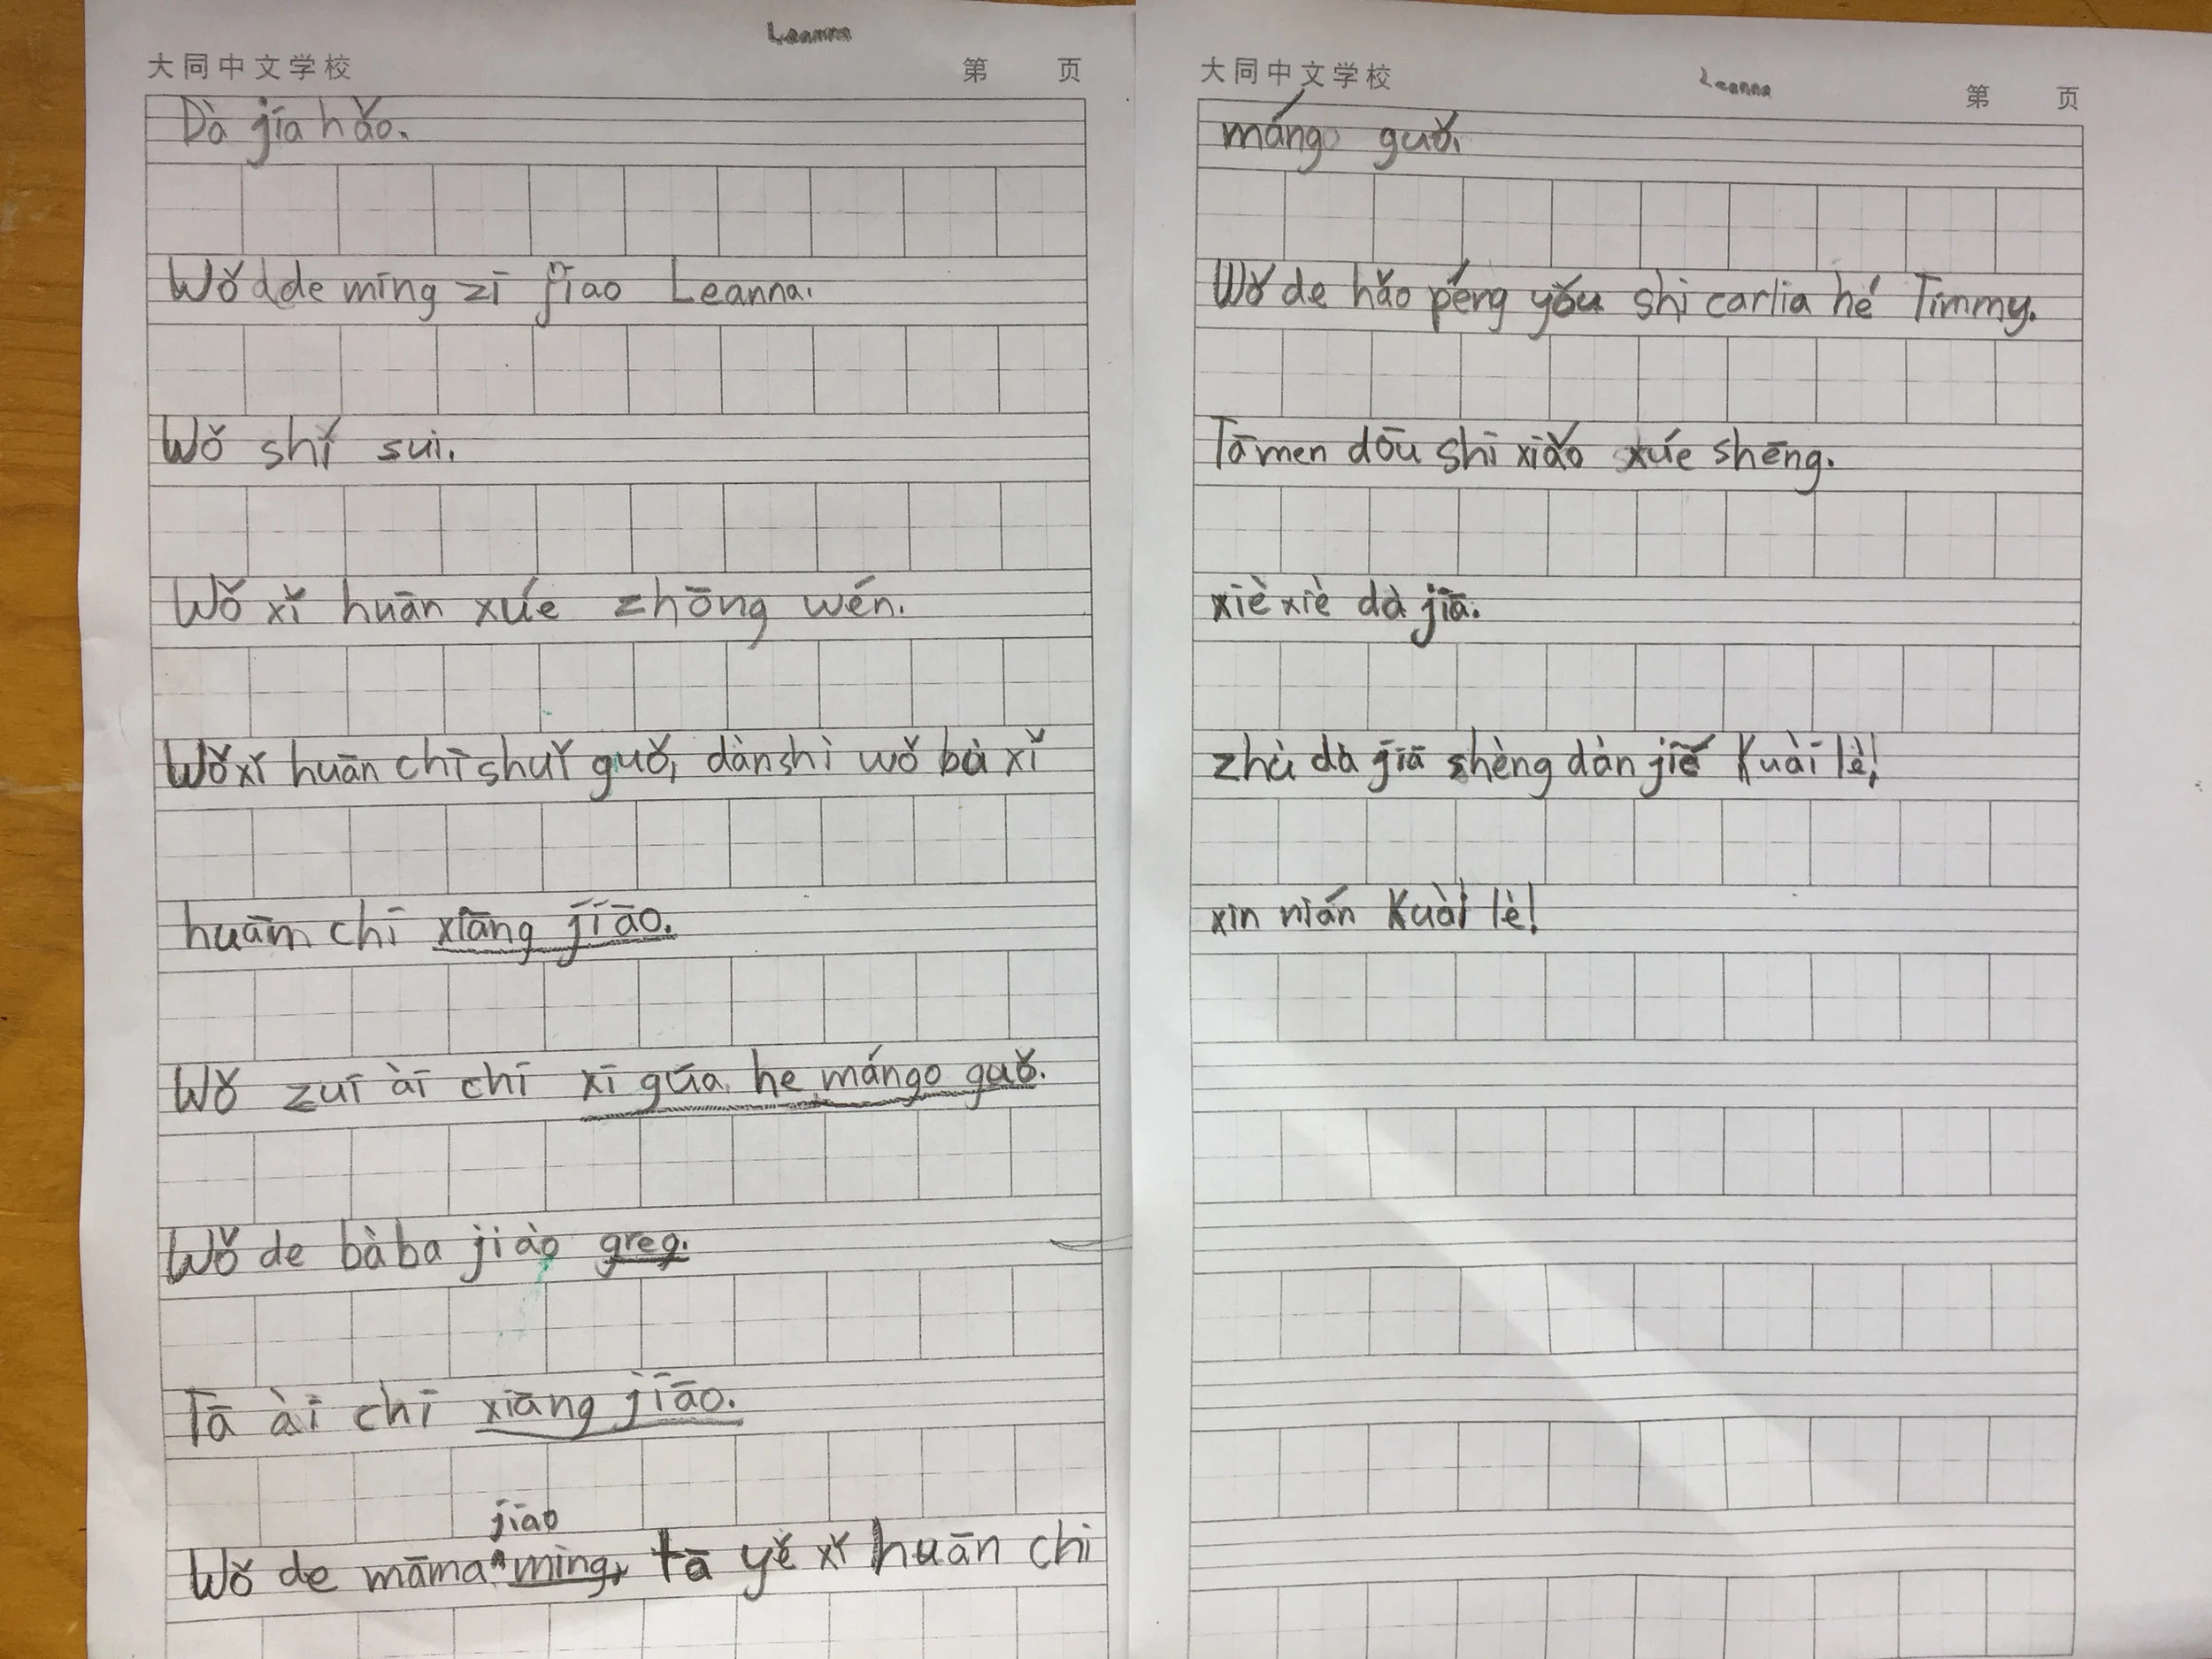 Leanna
大同中文学校 第 页
Dà jīa hǎo.
Wǒdde mīng zī jīao Leanna.
Wǒ shí sui.
Wǒ xǐ huān xúe zhōng wén.
Wǒ xǐ huān chī shuǐ guǒ, dànshì wǒ bù xǐ
huān chī xīāng jīāo.
Wǒ zuī àī chī xī gúa he mángo guǒ.
Wǒ de bàba jiào greg.
Tā àī chī xīāng jīāo.
jīao
Wǒ de māma ming, tā yě xǐ huān chi
大同中文学校 Leanna 第 页
mángo guǒ.
Wǒ de hǎo péng yǒu shì carlia hé Timmy.
Tāmen dōu shī xiǎo xúe shēng.
xīè xīè dà jīā.
zhù dà jīā shèng dàn jīě Kuàī lè!
xīn nīán Kuàī lè!